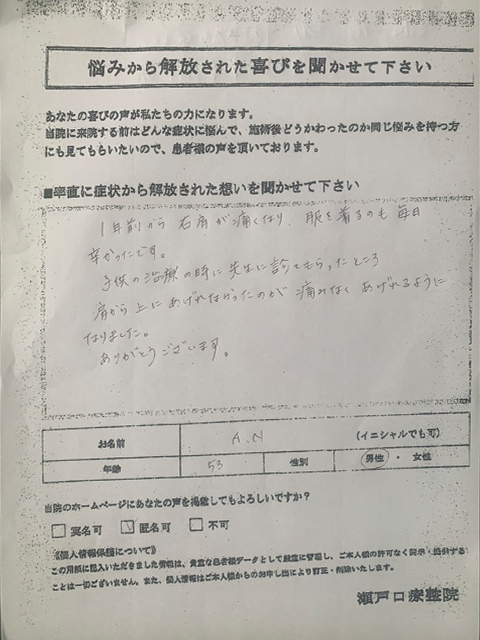 悩みから解放された喜びを聞かせて下さい
あなたの喜びの声が私たちの力になります。
当院に来院する前はどんな症状に悩んで、施術後どうかわったのか同じ悩みを持つ方
にも見てもらいたいので、患者様の声を頂いております。
■率直に症状から解放された想いを聞かせて下さい
1年前から 右肩が痛くなり、服を着るのも 毎日
辛かったです。
子供の治療の時に先生に診てもらったところ
肩から上にあげれなかったのが 痛みなく あげれるように
なりました。
ありがとうございます。
お名前 A.N (イニシャルでも可)
年齢 53 性別 男性・女性
当院のホームページにあなたの声を掲載してもよろしいですか？
□実名可 ☑匿名可 □不可
《個人情報保護について》
この用紙に記入いただきました情報は、貴重な患者様データとして厳重に管理し、ご本人様の許可なく開示・
ことは一切ございません。また、個人情報はご本人様からのお申し出により訂正・削除いたします。
瀬戸口療整院